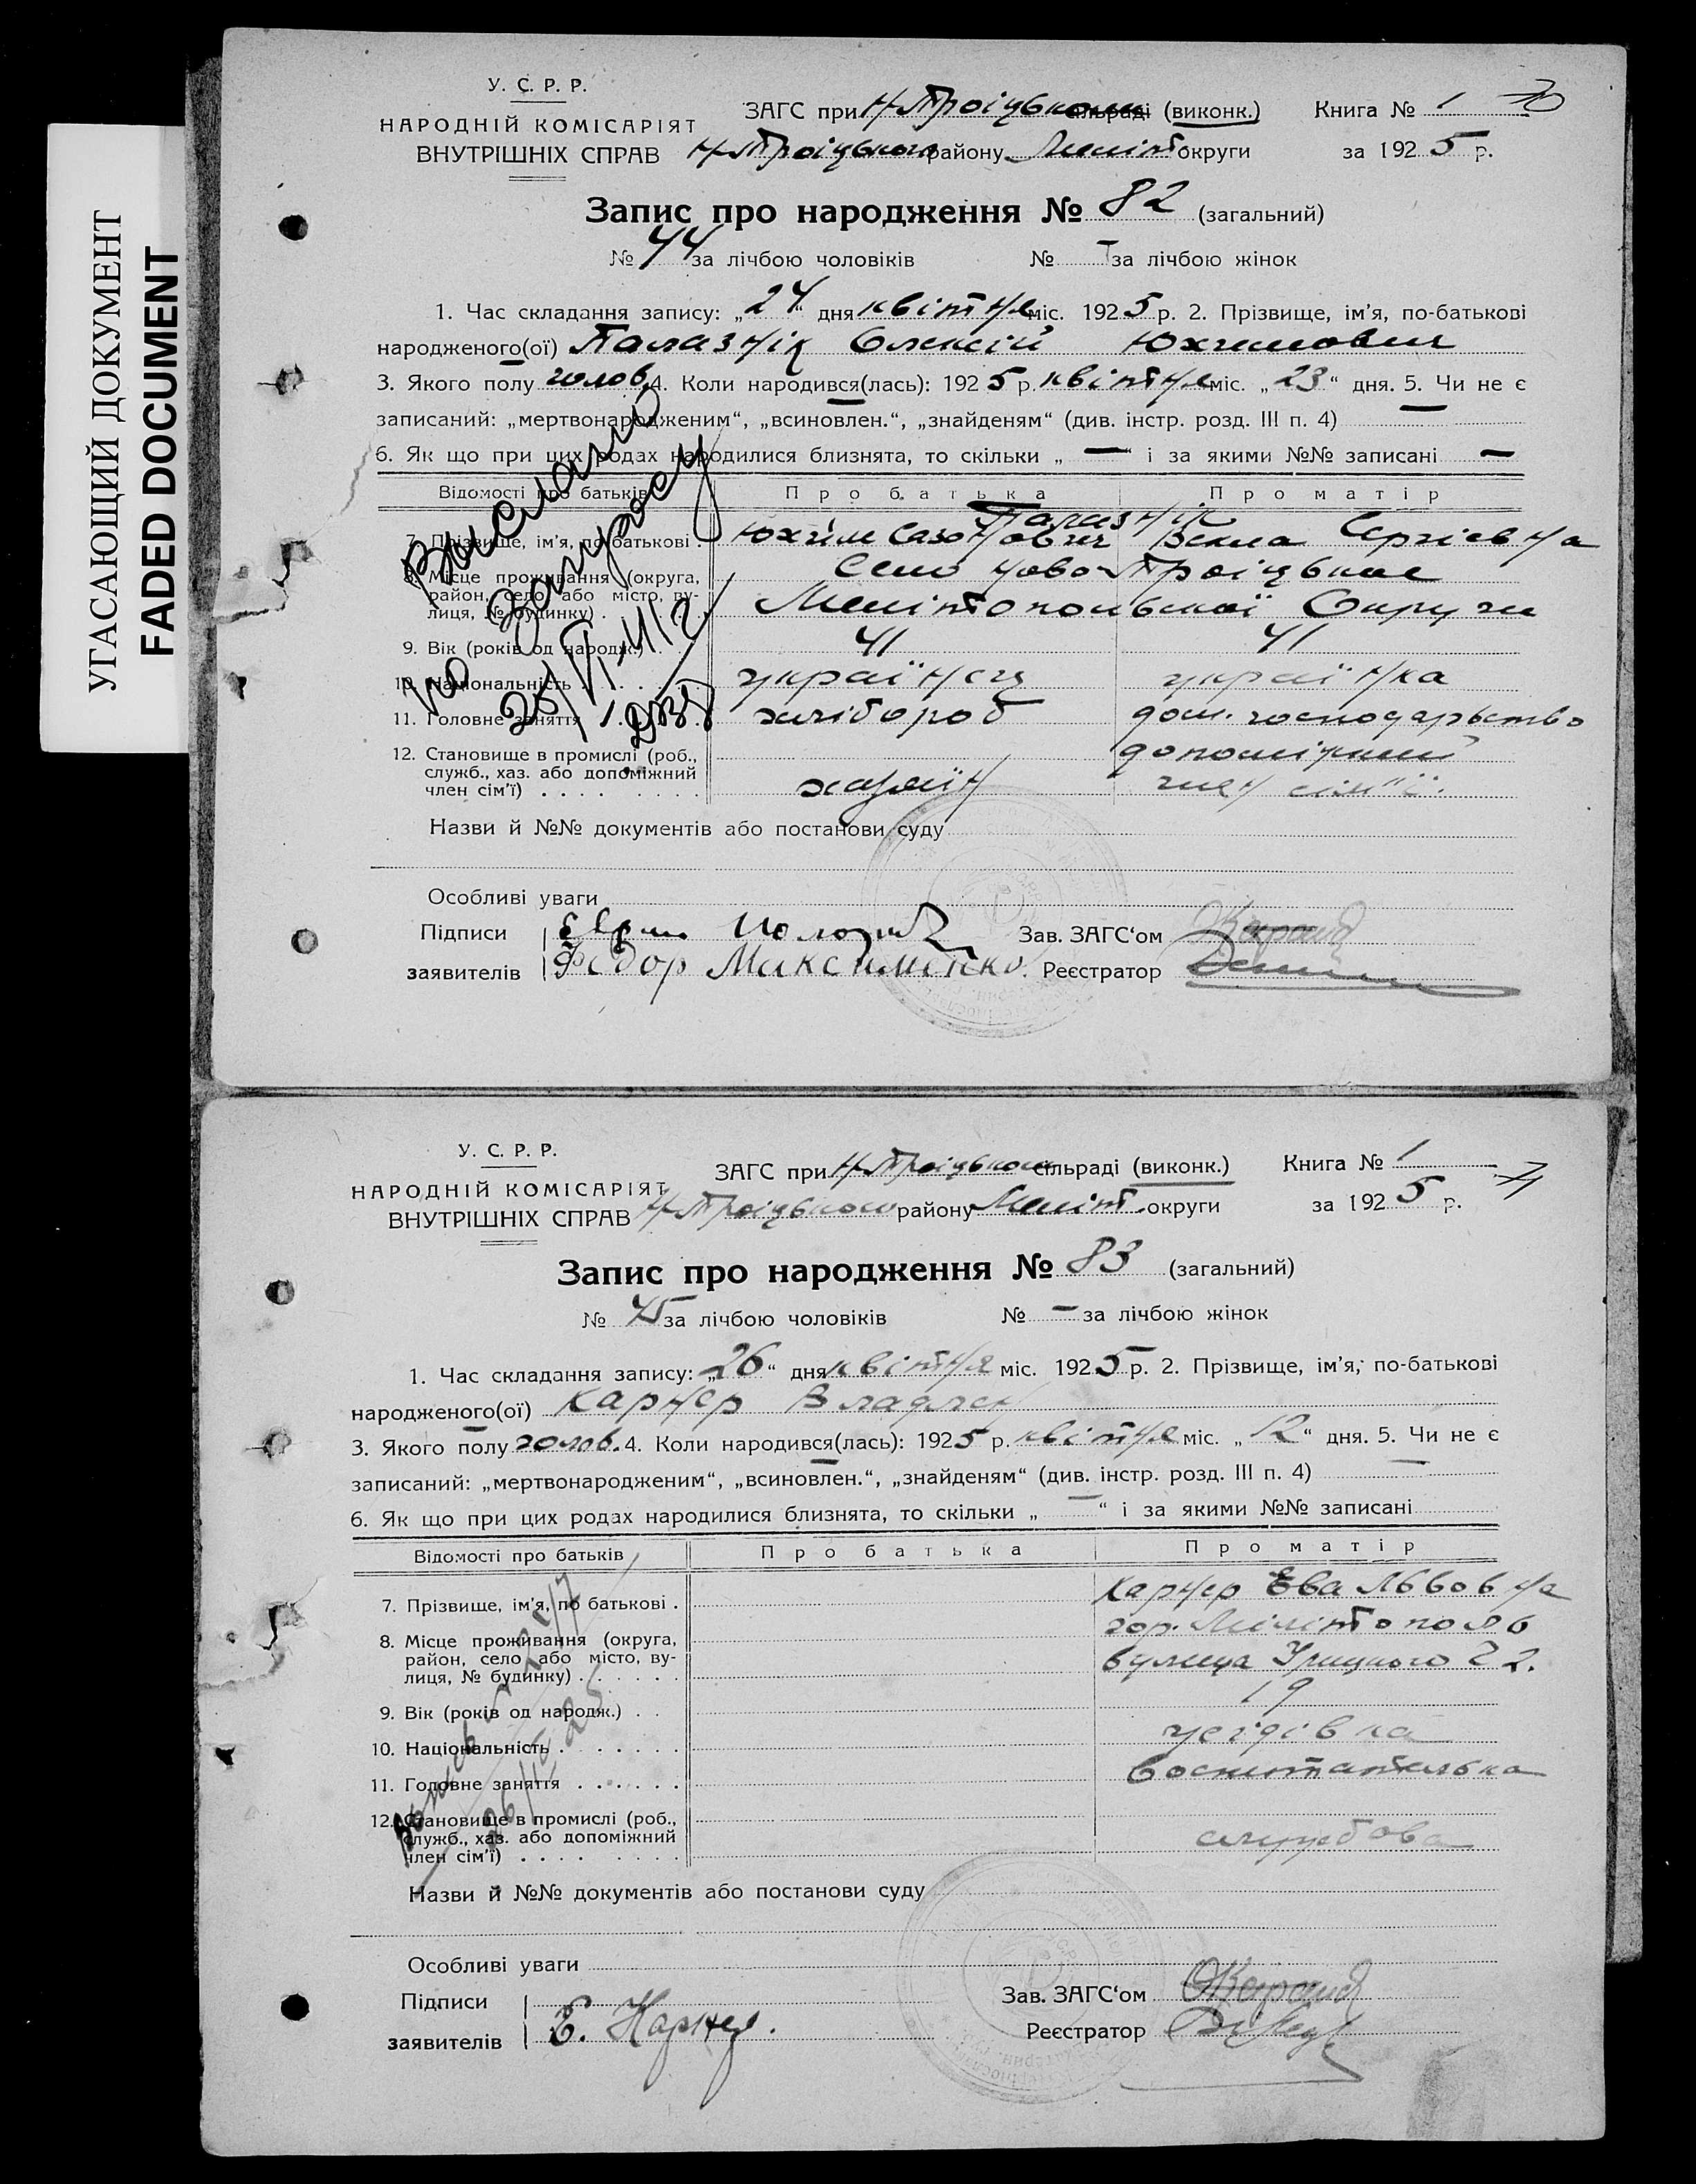 УГАСАЮЩИЙ ДОКУМЕНТ
FADED DOCUMENT
У. С. Р. Р.
НАРОДНІЙ КОМІСАРІЯТ
ВНУТРІШНІХ СПРАВ
ЗАГС при Н-Троіцьком сільраді (виконк.) Книга № 1 70
Н-Троіцького району Меліт округи за 1925 р.
Запис про народження № 82 (загальний)
№ 44 за лічбою чоловіків № — за лічбою жінок
1. Час складання запису: „24“ дня квітня міс. 1925 р. 2. Прізвище, ім'я, по-батькові
народженого(ої) Палазнік Олексій Юхимович
3. Якого полу чолов. 4. Коли народився(лась): 1925 р. квітня міс. „23“ дня. 5. Чи не є
записаний: „мертвонародженим“, „всиновлен.“, „знайденям“ (див. інстр. розд. III п. 4) —
6. Як що при цих родах народилися близнята, то скільки „—“ і за якими №№ записані —
Відомості про батьків Про батька Про матір
Палазнік
7. Прізвище, ім'я, по батькові . Юхим Сазонович Векла Сергіевна
8. Місце проживання (округа, район, село або місто, вулиця, № будинку) . Село Ново-Троіцькае
Мелітопольскої Округи
9. Вік (років од народж.) . . 41 41
10. Національність . . . . українец українка
11. Головне заняття . . . . хлібороб дом. господарьство
12. Становище в промислі (роб., служб., хаз. або допоміжний член сім'ї) . . . . хазяїн допоміжний
член сім"ї.
Выслано
по запросу
Назви й №№ документів або постанови суду
Особливі уваги
Підписи Зав. ЗАГС'ом
заявителів Федор Максименко. Реєстратор
У. С. Р. Р.
НАРОДНІЙ КОМІСАРІЯТ
ВНУТРІШНІХ СПРАВ
ЗАГС при Н-Троіцьком сільраді (виконк.) Книга № 1
Н-Троіцького району Меліт. округи за 1925 р. 71
Запис про народження № 83 (загальний)
№ 45 за лічбою чоловіків № — за лічбою жінок
1. Час складання запису: „26“ дня квітня міс. 1925 р. 2. Прізвище, ім'я, по-батькові
народженого(ої) Карнер Владлен
3. Якого полу чолов. 4. Коли народився(лась): 1925 р. квітня міс. „12“ дня. 5. Чи не є
записаний: „мертвонародженим“, „всиновлен.“, „знайденям“ (див. інстр. розд. III п. 4) —
6. Як що при цих родах народилися близнята, то скільки „—“ і за якими №№ записані
Відомості про батьків Про батька Про матір
7. Прізвище, ім'я, по батькові . Карнер Ева Львовна
8. Місце проживання (округа, район, село або місто, вулиця, № будинку) . . . . . гор. Мелітополь
вулиця Урицкого 22.
9. Вік (років од народж.) . . 19
10. Національність . . . . . . . жидівка
11. Головне заняття . . . . . . воспитателька
12. Становище в промислі (роб., служб., хаз. або допоміжний член сім'ї) . . . . службова
Назви й №№ документів або постанови суду
Особливі уваги
Підписи Зав. ЗАГС'ом
заявителів Е. Карнер. Реєстратор